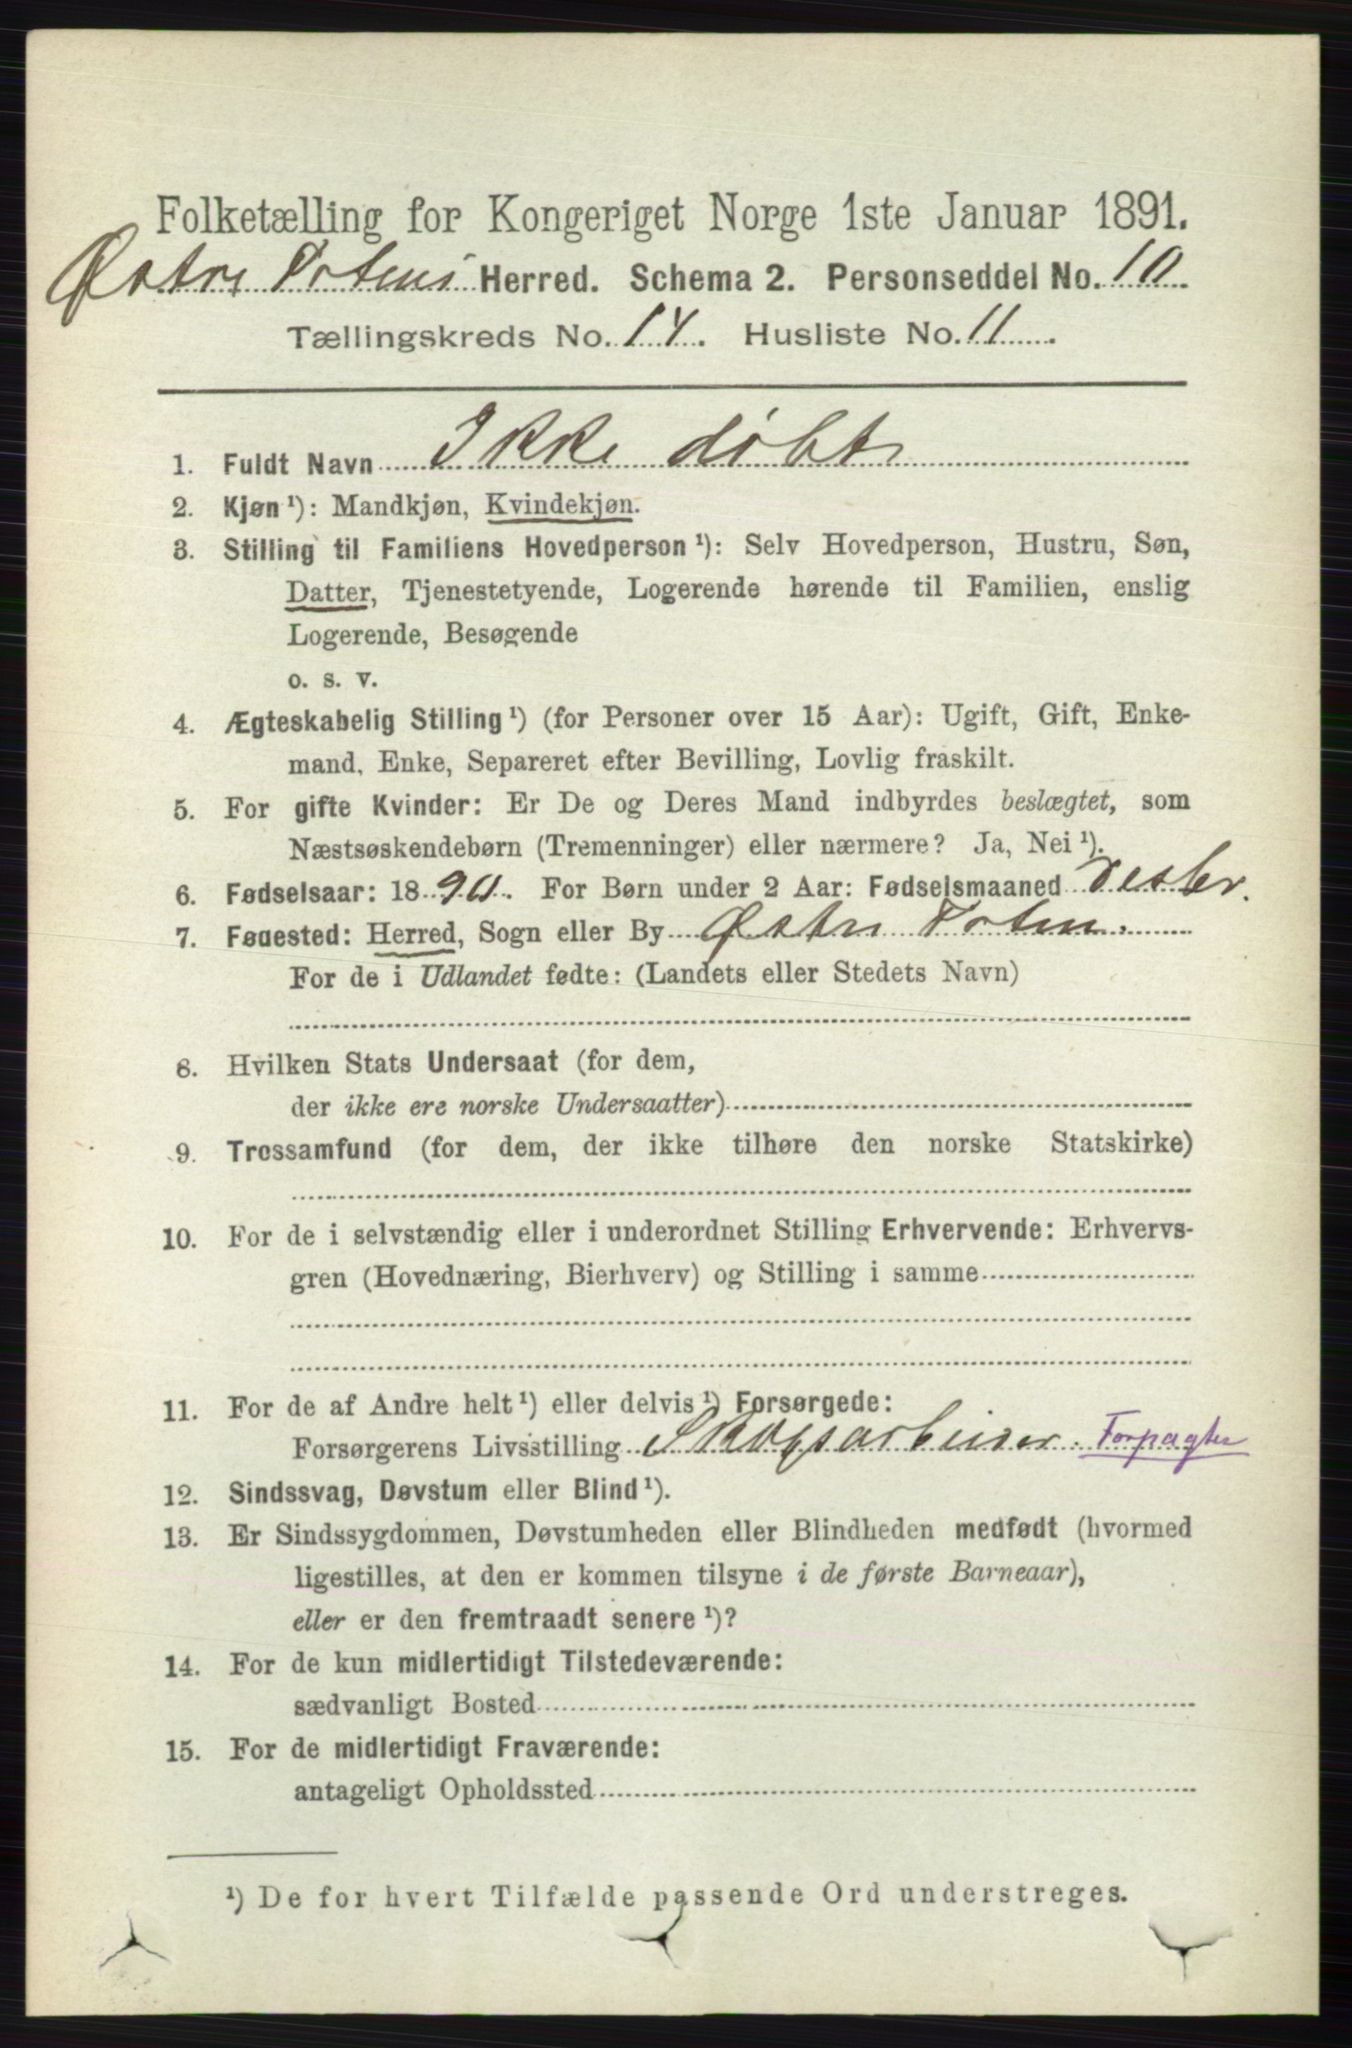 Folketælling for Kongeriget Norge 1ste Januar 1891.
Østre Totens Herred. Schema 2. Personseddel No. 10.
Tællingskreds No. 14. Husliste No. 11.
1. Fuldt Navn Ikke døbt
2. Kjøn ¹): Mandkjøn, Kvindekjøn.
3. Stilling til Familiens Hovedperson ¹): Selv Hovedperson, Hustru, Søn,
Datter, Tjenestetyende, Logerende hørende til Familien, enslig
Logerende, Besøgende
o. s. v.
4. Ægteskabelig Stilling ¹) (for Personer over 15 Aar): Ugift, Gift, Enke-
mand, Enke, Separeret efter Bevilling, Lovlig fraskilt.
5. For gifte Kvinder: Er De og Deres Mand indbyrdes beslægtet, som
Næstsøskendebørn (Tremenninger) eller nærmere? Ja, Nei ¹).
6. Fødselsaar: 1890. For Børn under 2 Aar: Fødselsmaaned Desbr.
7. Fødested: Herred, Sogn eller By Østre Toten.
For de i Udlandet fødte: (Landets eller Stedets Navn)
8. Hvilken Stats Undersaat (for dem,
der ikke ere norske Undersaatter)
9. Trossamfund (for dem, der ikke tilhøre den norske Statskirke)
10. For de i selvstændig eller i underordnet Stilling Erhvervende: Erhvervs-
gren (Hovednæring, Bierhverv) og Stilling i samme
11. For de af Andre helt ¹) eller delvis ¹) Forsørgede:
Forsørgerens Livsstilling Skogsarbeider. Forpagter
12. Sindssvag, Døvstum eller Blind ¹).
13. Er Sindssygdommen, Døvstumheden eller Blindheden medfødt (hvormed
ligestilles, at den er kommen tilsyne i de første Barneaar),
eller er den fremtraadt senere ¹)?
14. For de kun midlertidigt Tilstedeværende:
sædvanligt Bosted
15. For de midlertidigt Fraværende:
antageligt Opholdssted
¹) De for hvert Tilfælde passende Ord understreges.